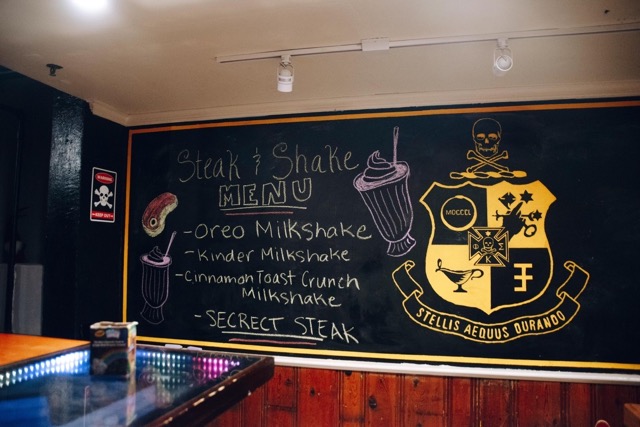 Steak & Shake
MENU
- Oreo Milkshake
- Kinder Milkshake
- Cinnamon Toast Crunch
Milkshake
- SECRECT STEAK
MDCCCL
Φ Κ Σ
STELLIS AEQUUS DURANDO
KEEP OUT